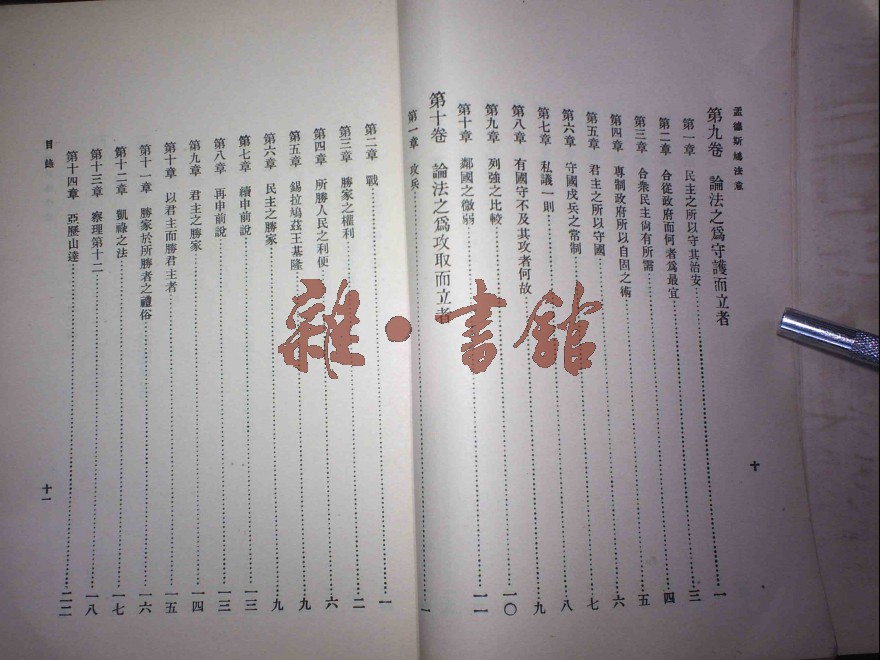 孟德斯鳩法意
第九卷 論法之爲守護而立者 一
第一章 民主之所以守其治安 三
第二章 合從政府而何者爲最宜 四
第三章 合衆民主尙有所需 五
第四章 專制政府所以自固之術 六
第五章 君主之所以守國 七
第六章 守國戍兵之常制 八
第七章 私議一則 九
第八章 有國守不及其攻者何故 一〇
第九章 列強之比較 一一
第十章 鄰國之微弱 一一
第十卷 論法之爲攻取而立者
第一章 攻兵 一
十
第二章 戰 一
第三章 勝家之權利 二
第四章 所勝人民之利便 六
第五章 錫拉鳩茲王基隆 九
第六章 民主之勝家 九
第七章 續申前說 一三
第八章 再申前說 一三
第九章 君主之勝家 一四
第十章 以君主而勝君主者 一五
第十一章 勝家於所勝者之禮俗 一六
第十二章 凱祿之法 一七
第十三章 察理第十二 一八
第十四章 亞歷山達 二二
目錄
十一
雜·書館